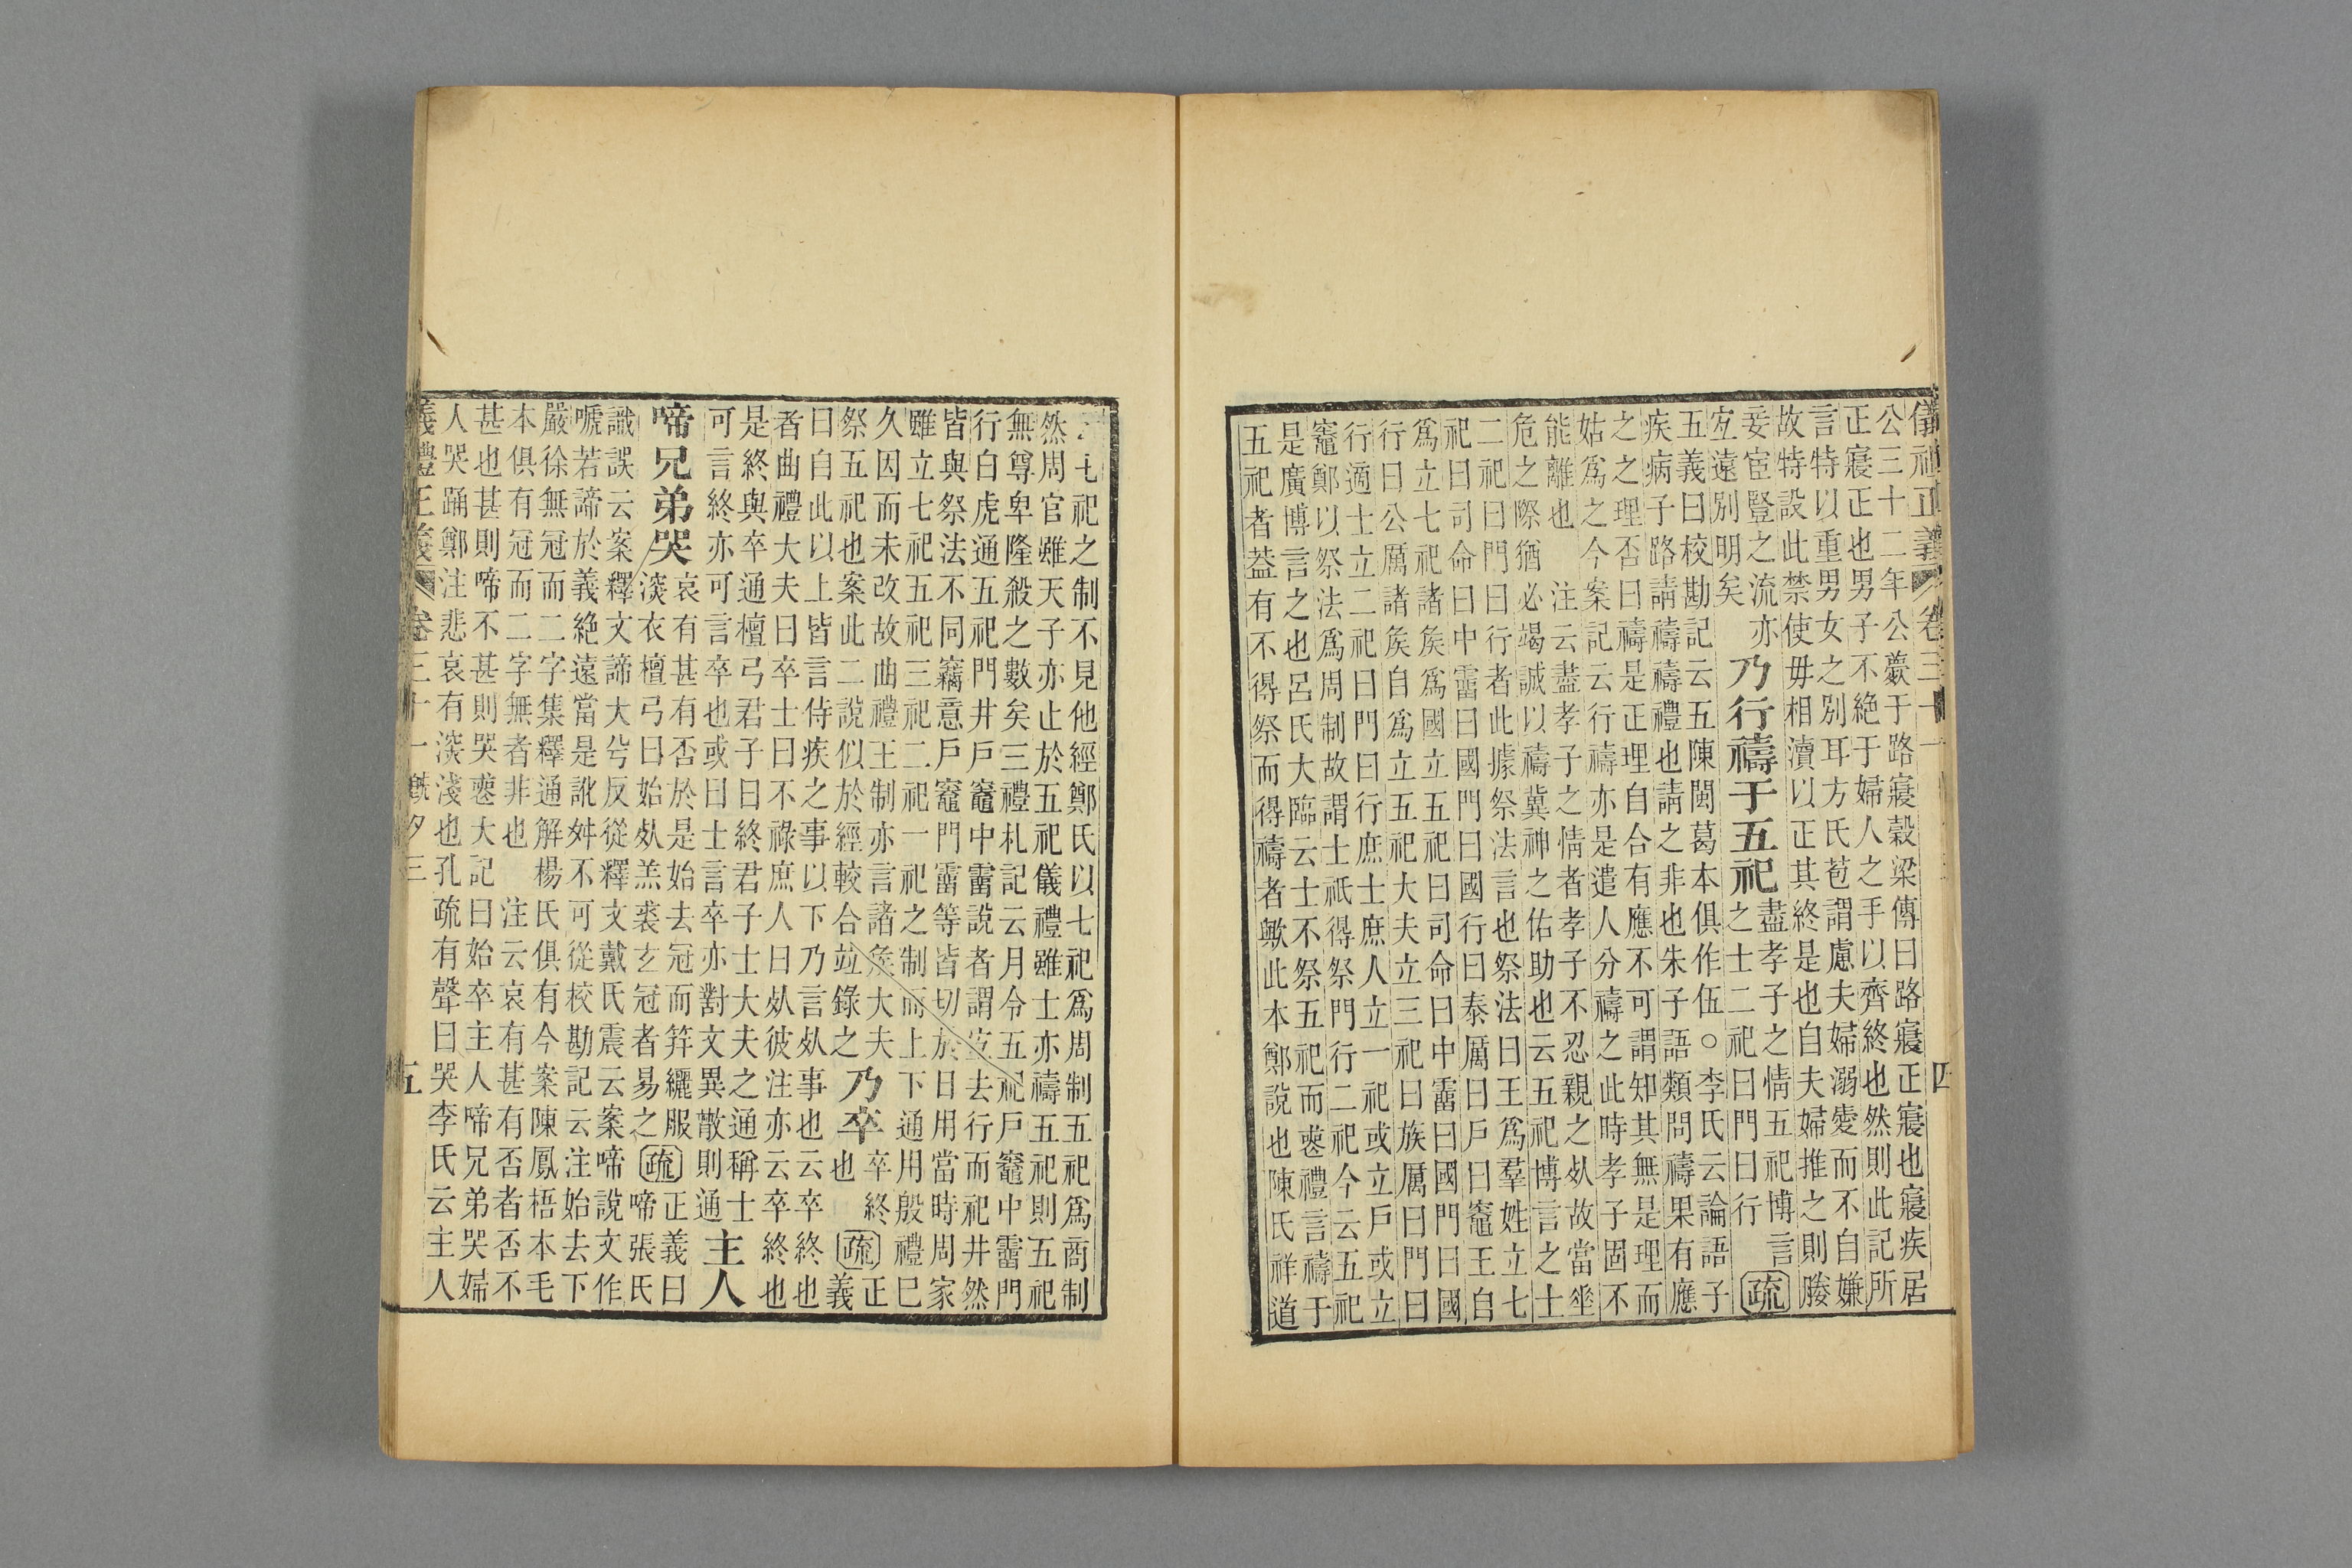 儀禮正義 卷三十一 四
公三十二年公薨于路寢穀梁傳曰路寢正寢也寢疾居
正寢正也男子不絕于婦人之手以齊終也然則此記所
言特以重男女之別耳方氏苞謂慮夫婦溺愛而不自嫌
故特設此禁使毋相瀆以正其終是也自夫婦推之則媵
妾宦豎之流亦
宐遠別明矣
乃行禱于五祀
盡孝子之情五祀博言
之士二祀曰門曰行
疏
五義曰校勘記云五陳閩葛本俱作伍○李氏云論語子
疾病子路請禱禱禮也請之非也朱子語類問禱果有應
之之理否曰禱是正理自合有應不可謂知其無是理而
姑爲之今案記云行禱亦是遣人分禱之此時孝子固不
能離也 注云盡孝子之情者孝子不忍親之㱙故當㘸
危之際猶必竭誠以禱冀神之佑助也云五祀博言之士
二祀曰門曰行者此據祭法言也祭法曰王爲羣姓立七
祀曰司命曰中霤曰國門曰國行曰泰厲曰戶曰竈王自
爲立七祀諸矦爲國立五祀曰司命曰中霤曰國門曰國
行曰公厲諸矦自爲立五祀大夫立三祀曰族厲曰門曰
行適士立二祀曰門曰行庶士庶人立一祀或立戶或立
竈鄭以祭法爲周制故謂士祇得祭門行二祀今云五祀
是廣博言之也呂氏大臨云士不祭五祀而䘮禮言禱于
五祀者葢有不得祭而得禱者歟此本鄭說也陳氏祥道
七祀之制不見他經鄭氏以七祀爲周制五祀爲商制
然周官雖天子亦止於五祀儀禮雖士亦禱五祀則五祀
無尊卑隆殺之數矣三禮札記云月令五祀戶竈中霤門
行白虎通五祀門井戶竈中霤說者謂宐去行而祀井然
皆與祭法不同竊意戶竈門霤等皆切於日用當時周家
雖立七祀五祀三祀二祀一祀之制而上下通用殷禮巳
久因而未改故曲禮王制亦言諸矦大夫
祭五祀也案此二說似於經較合竝錄之
乃卒
卒終
也
疏
正
義
曰自此以上皆言侍疾之事以下乃言㱙事也云卒終也
者曲禮大夫曰卒士曰不祿庶人曰㱙彼注亦云卒終也
是終與卒通檀弓君子曰終君子士大夫之通稱士
可言終亦可言卒也或曰士言卒亦對文異散則通
主人
啼兄弟哭
哀有甚有否於是始去冠而笄纚服
深衣檀弓曰始㱙羔裘玄冠者易之
疏
正義曰
啼張氏
識誤云案釋文諦大兮反從釋文戴氏震云案啼說文作
嗁若諦於義絕遠當是訛舛不可從校勘記云注始去下
嚴徐無冠而二字集釋通解楊氏俱有今案陳鳳梧本毛
本俱有冠而二字無者非也 注云哀有甚有否者否不
甚也甚則啼不甚則哭䘮大記曰始卒主人啼兄弟哭婦
人哭踊鄭注悲哀有深淺也孔疏有聲曰哭李氏云主人
義禮正義 卷三十一 旣夕三 五